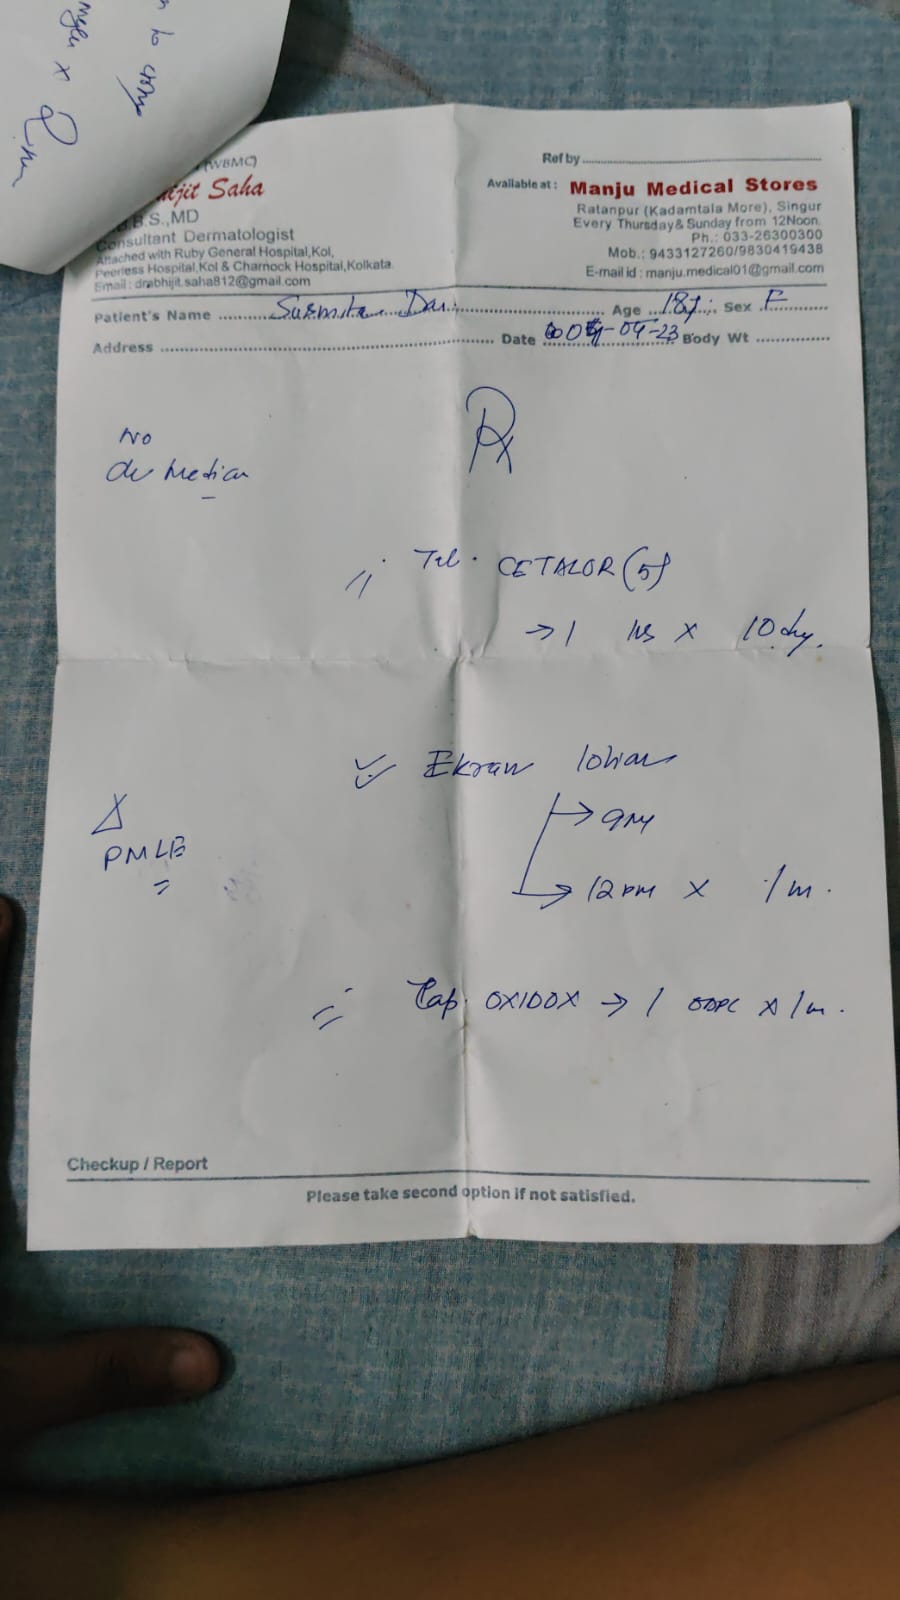 (WBMC)
jit Saha
B.S.,MD
Consultant Dermatologist
Attached with Ruby General Hospital,Kol,
Peerless Hospital,Kol & Charnock Hospital,Kolkata.
Email : drabhijit.saha812@gmail.com
Ref by
Available at : Manju Medical Stores
Ratanpur (Kadamtala More), Singur
Every Thursday & Sunday from 12Noon.
Ph.: 033-26300300
Mob.: 9433127260/9830419438
E-mail id : manju.medical01@gmail.com
Patient's Name Susmita Age 18y Sex F
Address Date Body Wt
No
Rx
CETALOR (5)
→ 1 HS x 10 day.
Ekran lotion
→ 9AM
→ 12 PM x 1m.
Δ
PMLE
Cap. OXIDOX → 1 ODPC x 1m.
Checkup / Report
Please take second option if not satisfied.